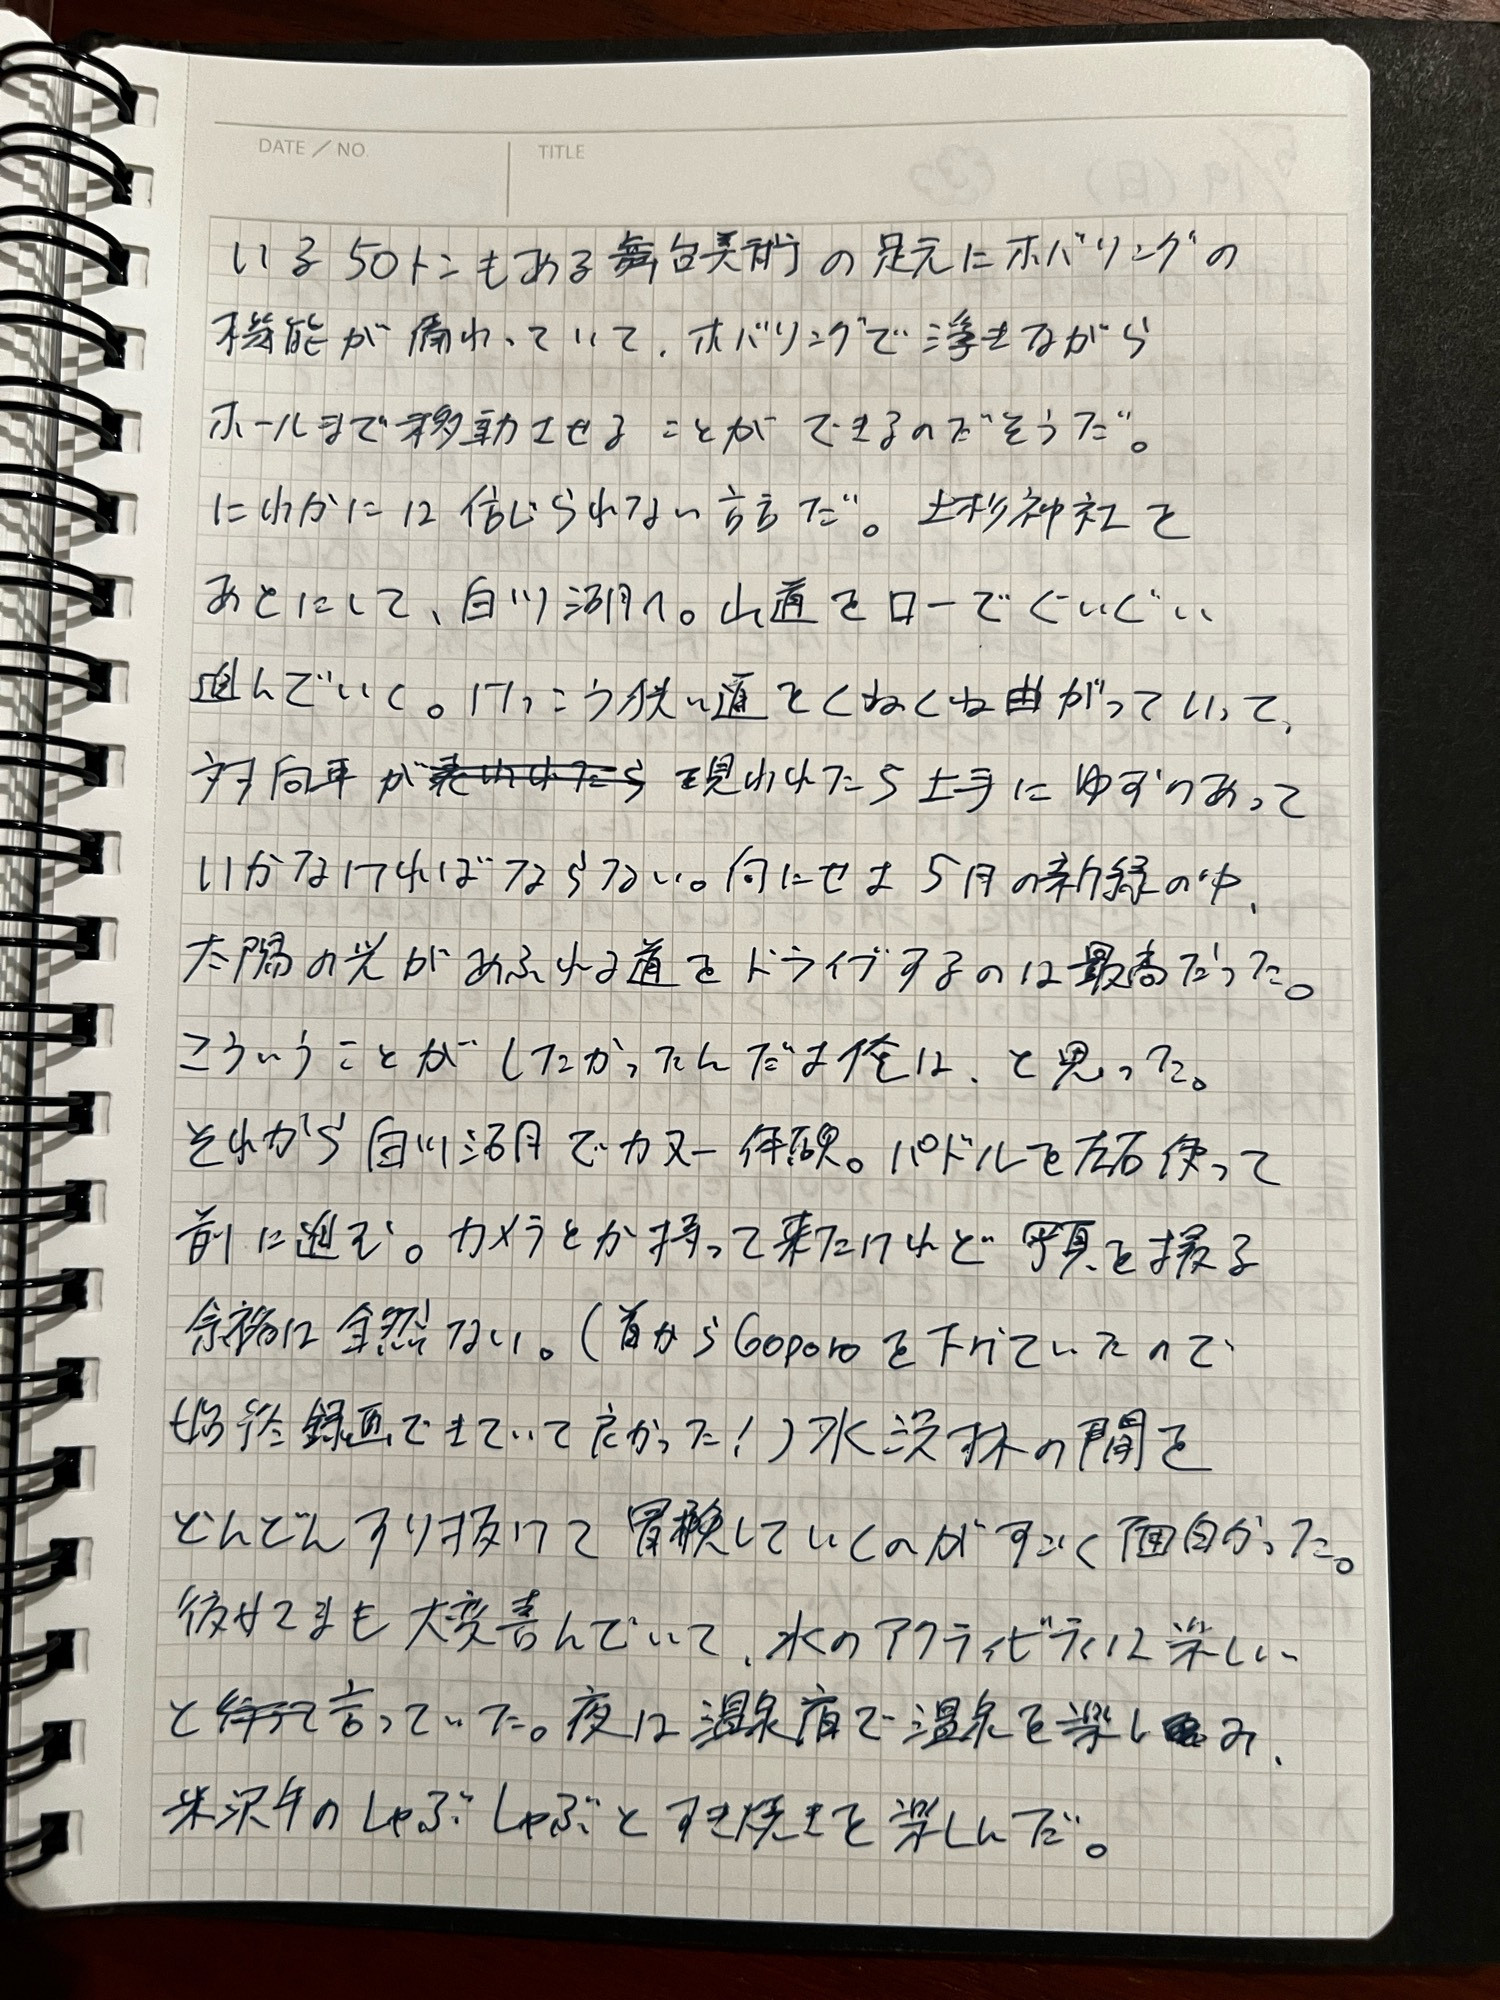 DATE / NO.
TITLE
いる50トンもある舞台美術の足元にホバリングの
機能が備わっていて、ホバリングで浮きながら
ホールまで移動させることができるのだそうだ。
にわかには信じられない話だ。上杉神社を
あとにして、白川湖へ。山道をローでぐいぐい
進んでいく。けっこう狭い道をくねくね曲がっていって、
対向車が現われたら土手にゆずりあって
いかなければならない。何にせよ5月の新緑の中、
太陽の光があふれる道をドライブするのは最高だった。
こういうことがしたかったんだよ俺は、と思った。
それから白川湖でカヌー体験。パドルを左右使って
前に進む。カメラとか持って来たけれど写真を撮る
余裕は全然ない。(首からGoproを下げていたので
始終録画できていて良かった!)水没林の間を
どんどんすり抜けて冒険していくのがすごく面白かった。
彼女さまも大変喜んでいて、水のアクティビティは楽しい
と言っていた。夜は温泉宿で温泉を楽しみ、
米沢牛のしゃぶしゃぶとすき焼きを楽しんだ。